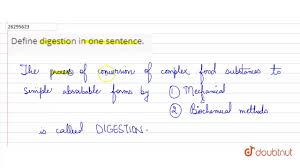 26295623
Define digestion in one sentence.
The process of conversion of complex food substances to
simple absorbable forms by ① Mechanical
② Biochemical methods
is called DIGESTION.
doubtnut